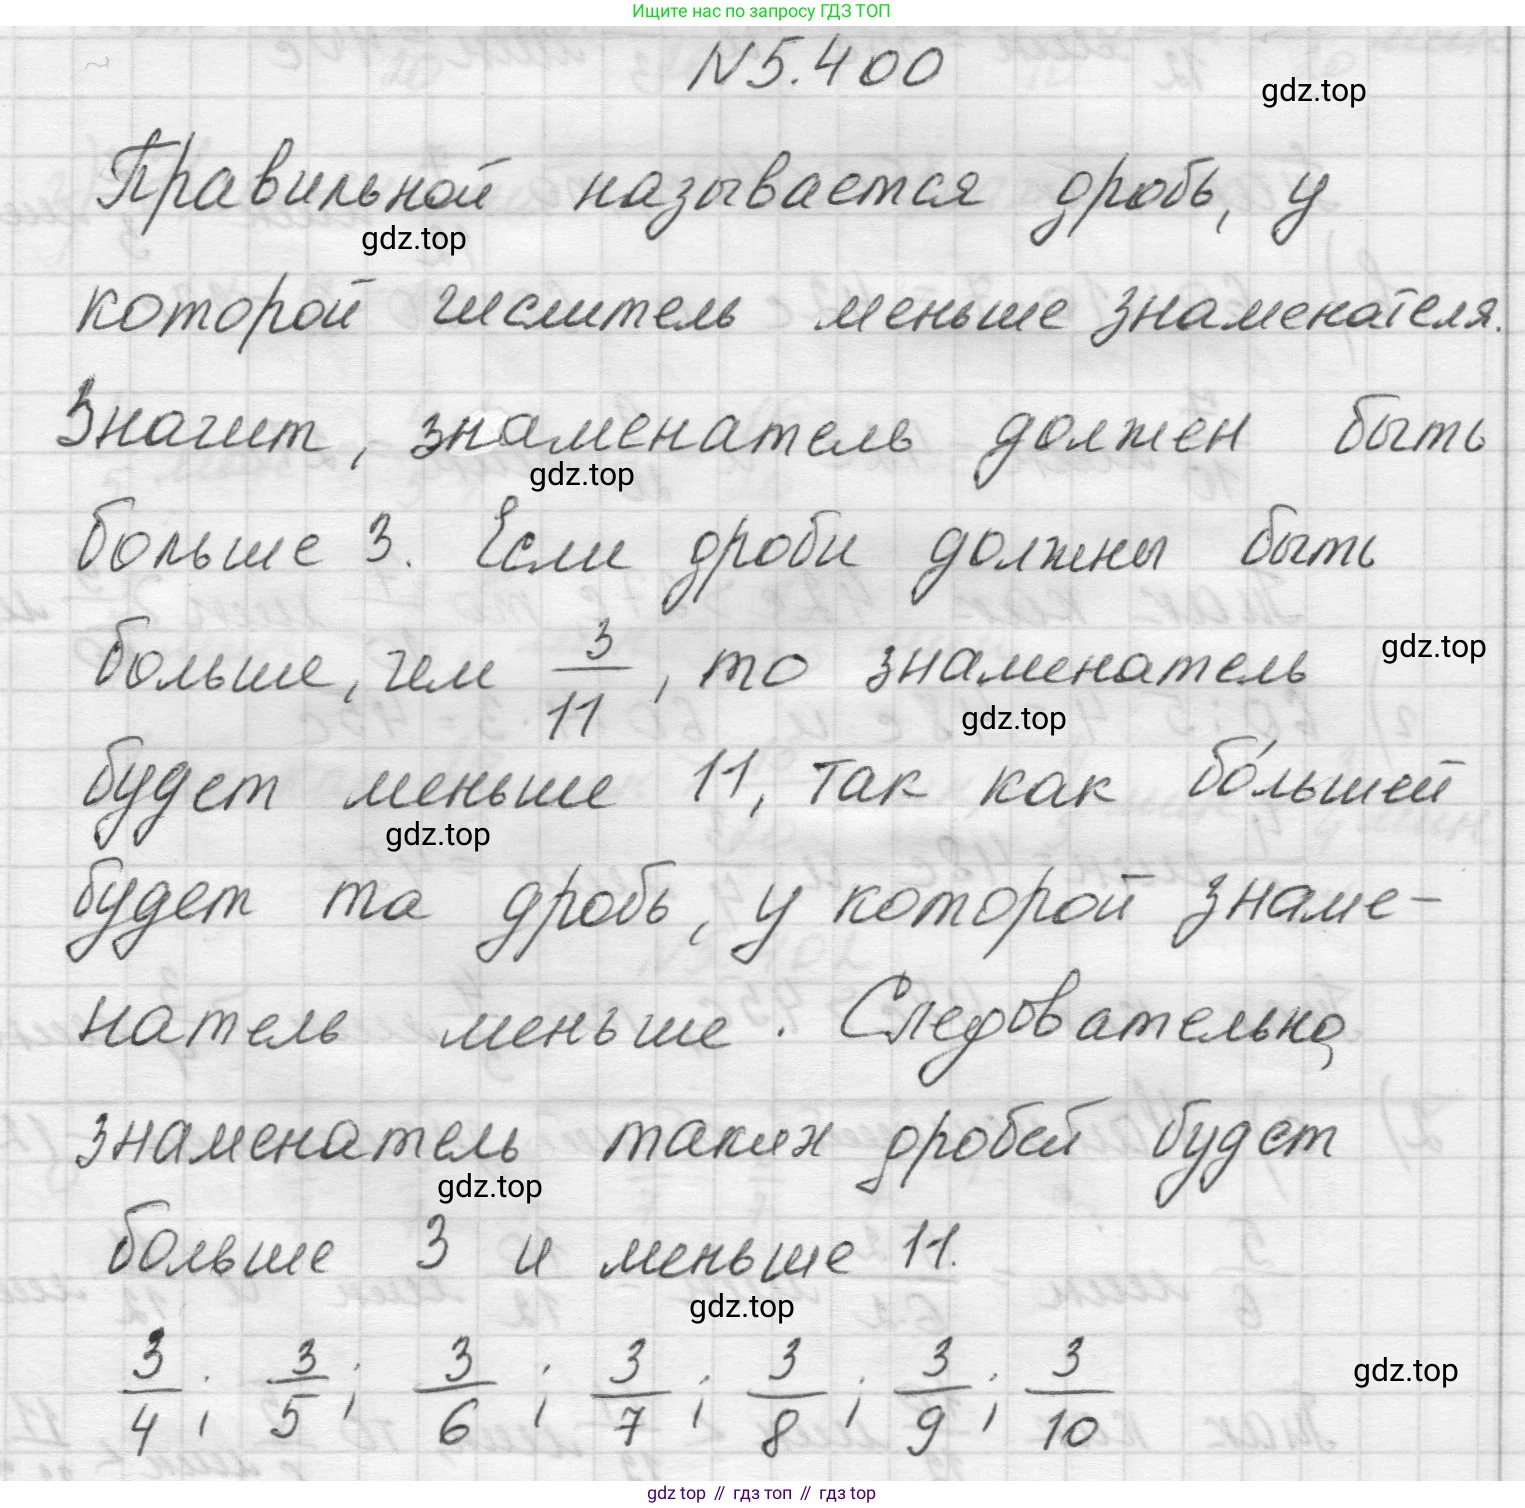 Ищите нас по запросу ГДЗ ТОП
№5.400
gdz.top
Правильной называется дробь, у
gdz.top
которой числитель меньше знаменателя.
Значит, знаменатель должен быть
gdz.top
больше 3. Если дроби должны быть
больше, чем 3/11, то знаменатель
gdz.top
gdz.top
будет меньше 11, так как бо́льшей
gdz.top
будет та дробь, у которой знаме-
натель меньше. Следовательно,
знаменатель таких дробей будет
gdz.top
больше 3 и меньше 11.
gdz.top
3/4; 3/5; 3/6; 3/7; 3/8; 3/9; 3/10
gdz.top
gdz top // гдз топ // гдз top